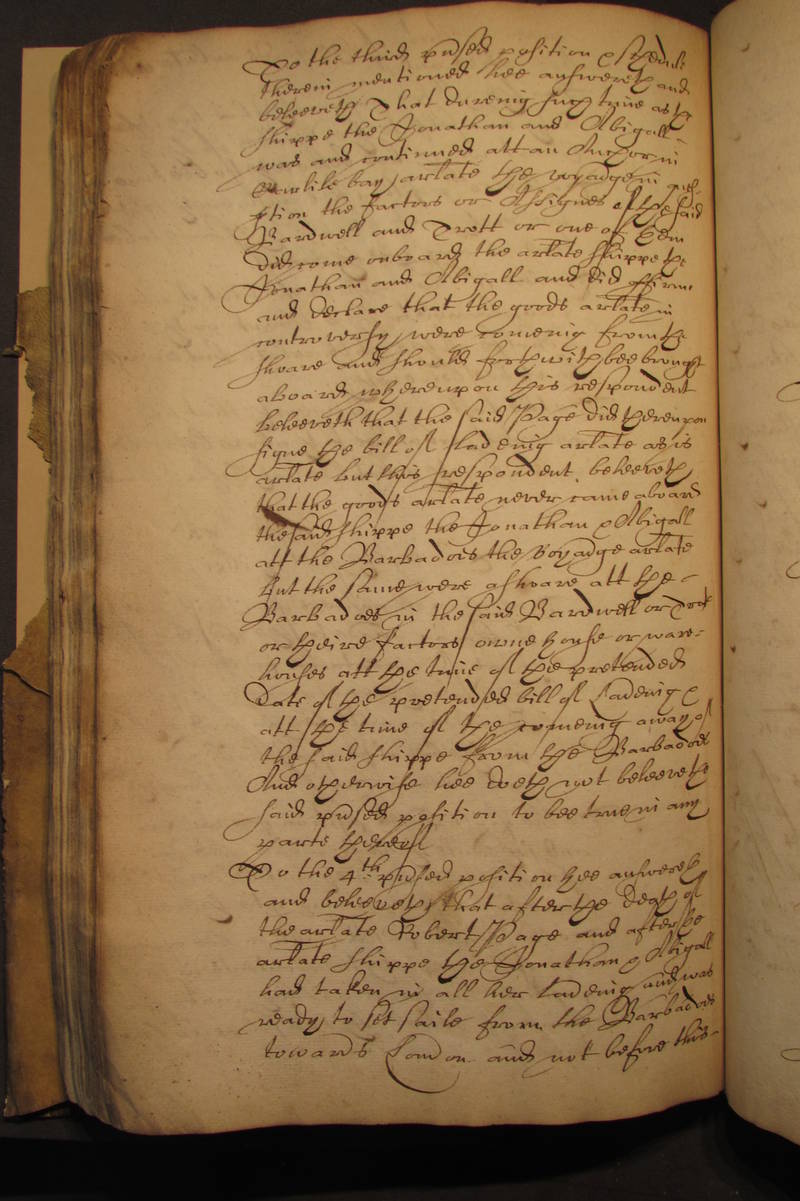 To the third prsed position & schedule
therein mentioned hee answereth and
beleeveth That dureing such time as the
shippe the Jonathan and Abigall
was and continued att an Anchor in
Carlile bay arlate the voyadge in que=
stion the factors or Assignes of the said
Bardwell and Trott or one of them
did come onboard the arlate shippe the
Jonathan and Abigall and did affirme
and declare that the goods arlate in
controversy were comeing from the
shoare and should forthwith bee brought
aboard whereupon this respondent
beleeveth that the said Page did thereupon
signe the bill of ladeing arlate as is
arlate but this respondent beleeveth
that the goods arlate never came aboard
the said shippe the Jonathan & Abigall
att the Barbados the voyadge arlate
But the same were ashoare att the -
Barbados in the said Bardwell or Trott
or theire factors owne house or ware-
houses att the time of the pretended
Date of the pretended bill of Ladeing &
att the time of the comeing away of
the said shippe from the Barbados
And otherwise hee doeth not beleeve the
said prsed position to bee true in any
parte thereof
To the 4th prsed position hee answereth
and beleeveth that after the death of
the arlate Robert Page and after the
arlate shippe the Jonathan & Abigall
had taken in all her ladeing and was
ready to set saile from the Barbados
towards London and not before this-